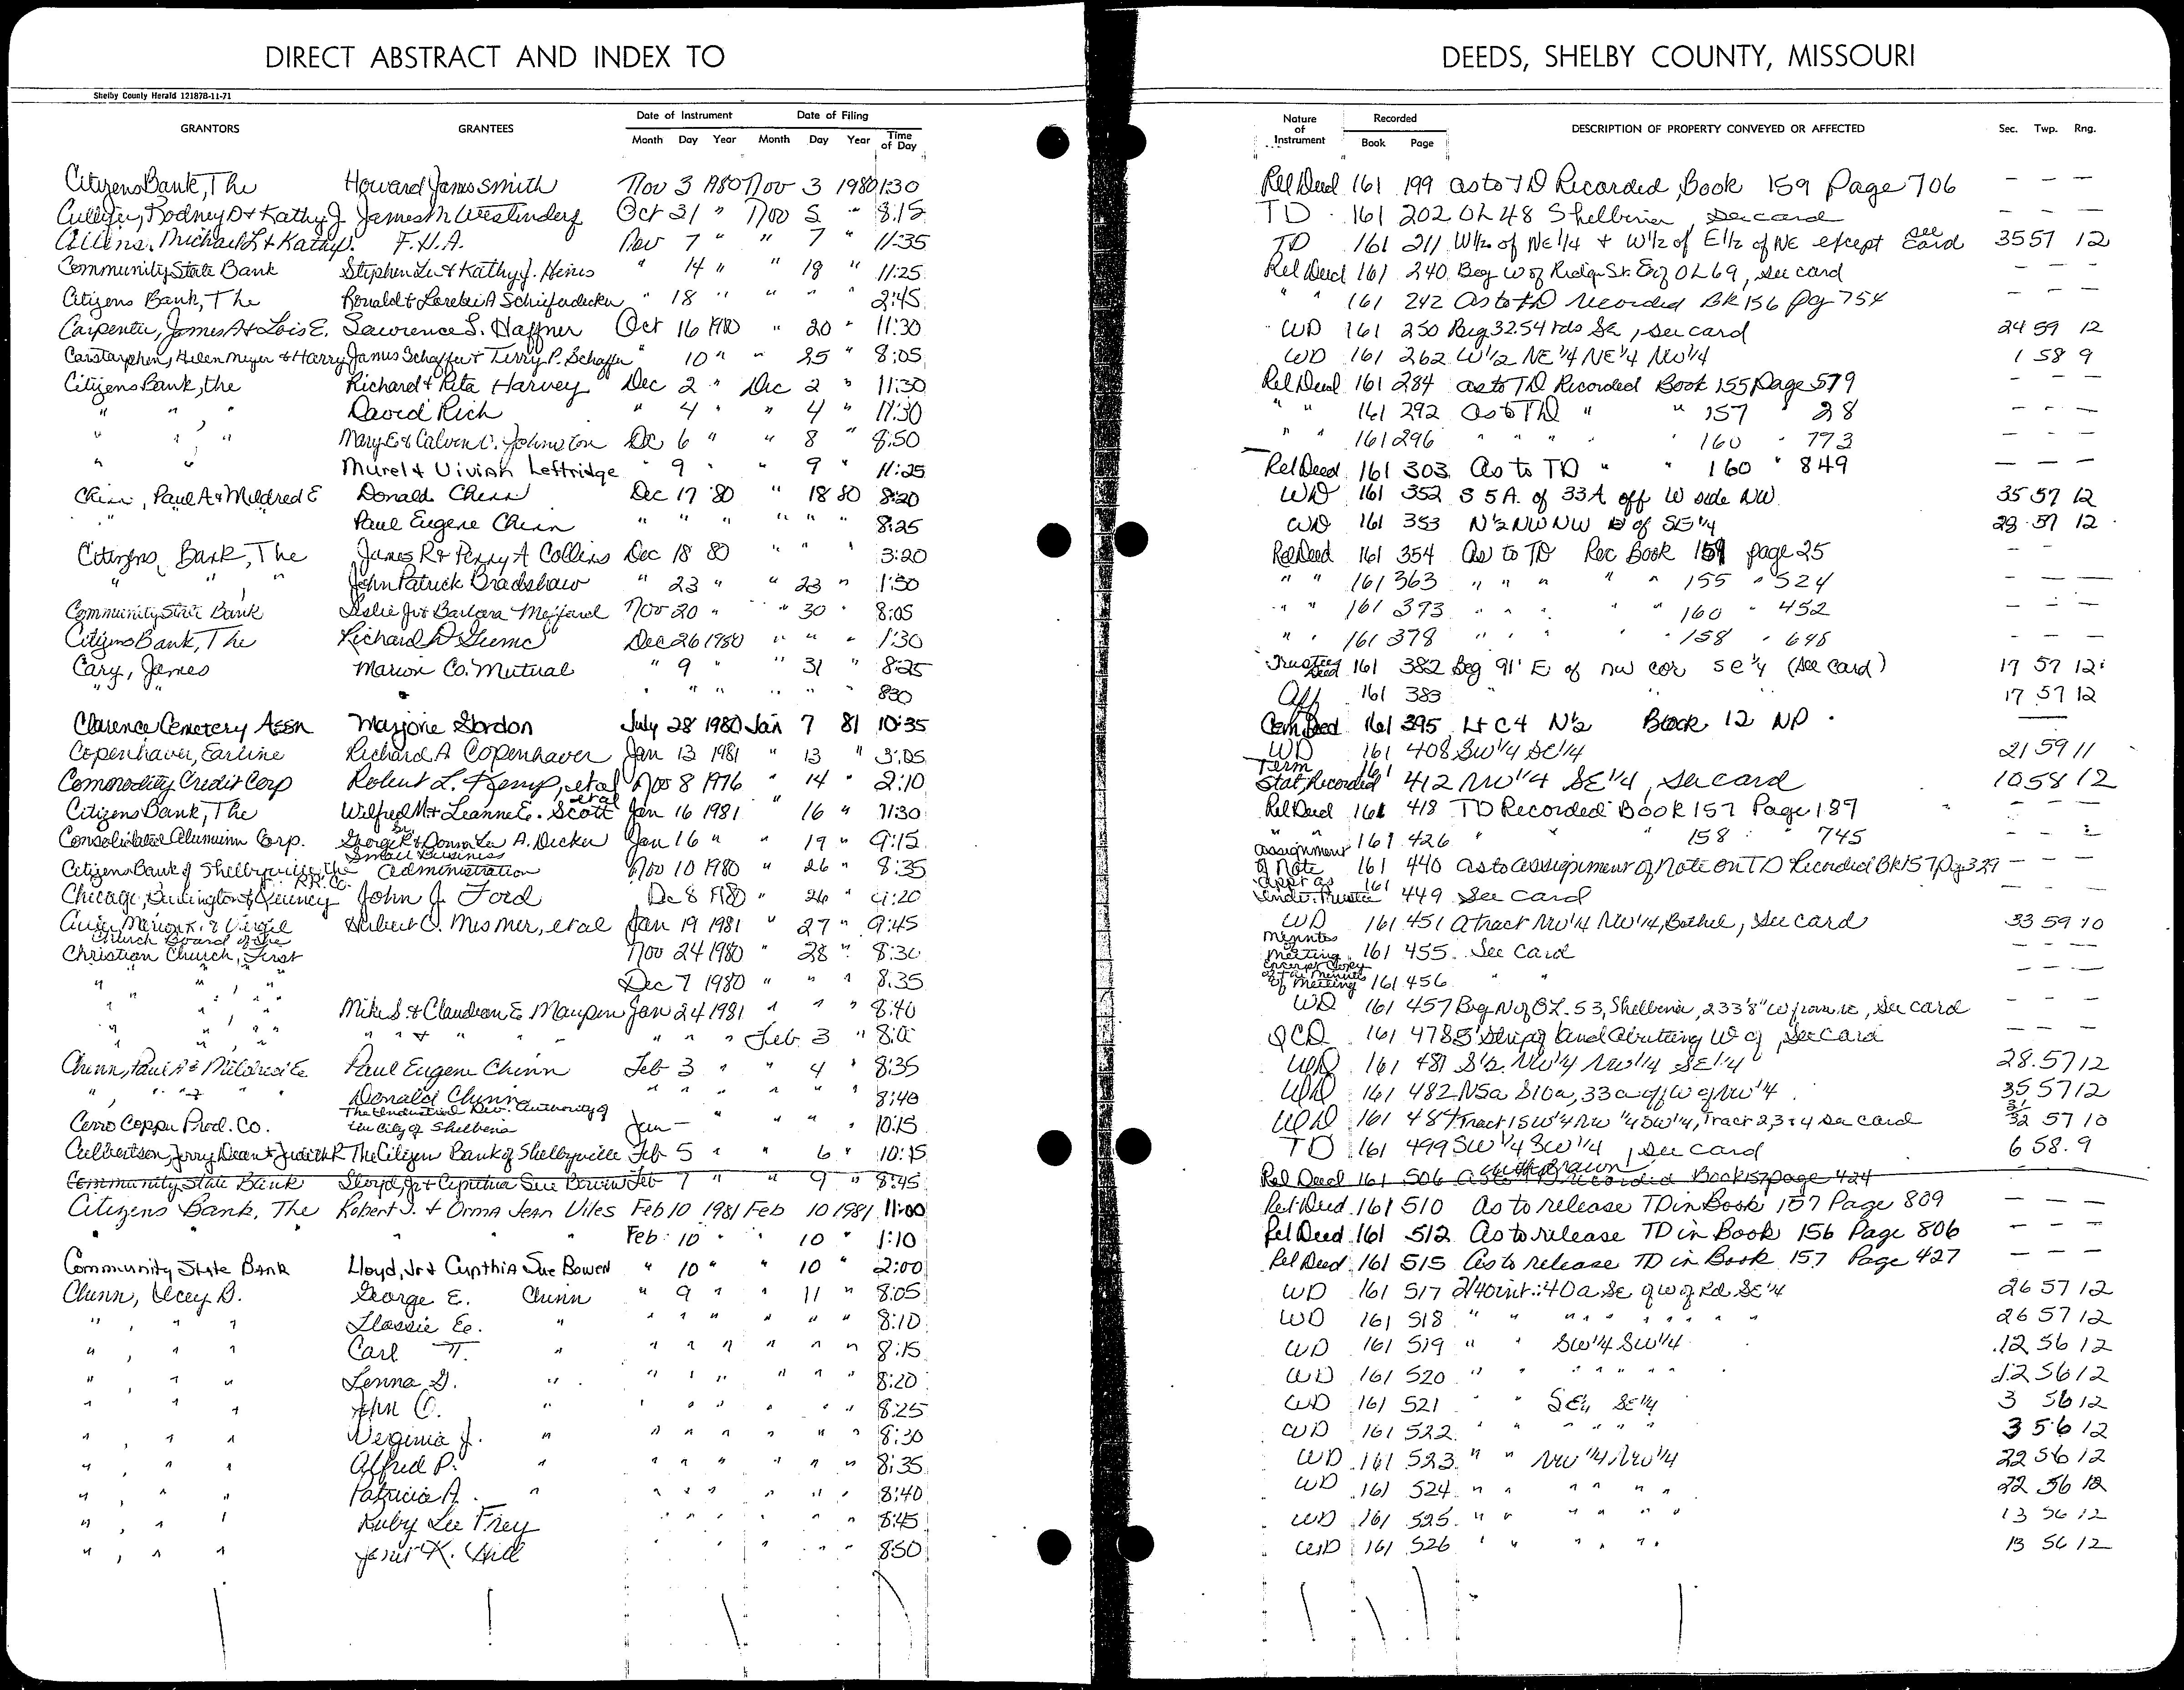 DIRECT ABSTRACT AND INDEX TO DEEDS, SHELBY COUNTY, MISSOURI
Shelby County Herald 12187B-11-71
GRANTORS GRANTEES Date of Instrument Date of Filing Nature of Instrument Recorded DESCRIPTION OF PROPERTY CONVEYED OR AFFECTED Sec. Twp. Rng.
Month Day Year Month Day Year Time of Day Book Page
Citizens Bank, The Howard James Smith Nov 3 1980 Nov 3 1980 1:30 Rel Deed 161 199 as to TD Recorded, Book 159 Page 706 — — —
Rodney D & Kathy J. James M Westendorf Oct 31 " Nov 5 " 8:15 TD 161 202 OL 48 Shelbina, see card — — —
Michael L & Kathy F.H.A. Nov 7 " " 7 " 11:35 TD 161 211 W 1/2 of NE 1/4 + W 1/2 of E 1/2 of NE except see card 35 57 12
Community State Bank Stephen Le & Kathy J. Hines " 14 " " 18 " 11:25 Rel Deed 161 240 Beg W of Ridge St. E of OL 69, see card — — —
Citizens Bank, The Ronald & Lorelei A Schieferdecker " 18 " " " " 2:45 " " 161 242 As to TD recorded BK 156 pg 754 — — —
Carpenter, James A & Lois E. Lawrence S. Haffner Oct 16 1980 " 20 " 11:30 WD 161 250 Beg 32.54 rds SE, see card 24 59 12
Carstarphen, Helen Meyer & Harry James Schaffer & Terry P. Schaffer " 10 " " 25 " 8:05 WD 161 262 W 1/2 NE 1/4 NE 1/4 NW 1/4 1 58 9
Citizens Bank, the Richard & Rita Harvey Dec 2 " Dec 2 " 11:30 Rel Deed 161 284 as to TD Recorded Book 155 page 579 — — —
" " " David Rich " 4 " " 4 " 11:30 " " 161 292 As to TD " " 157 " 28 — — —
" , " Mary E & Calvin C. Johnston Dec 6 " " 8 " 8:50 " " 161 296 " " " " " 160 " 773 — — —
" " Murel & Vivian Leftridge " 9 " " 9 " 11:25 Rel Deed 161 303 As to TD " " 160 " 849 — — —
Chinn, Paul A & Mildred E Donald Chinn Dec 17 '80 " 18 80 8:20 WD 161 352 S 5 A. of 33 A off W side NW 35 57 12
" Paul Eugene Chinn " " " " " " 8:25 WD 161 353 N 1/2 NW NW of SE 1/4 28 57 12
Citizens Bank, The James R & Penny A Collins Dec 18 80 " " " 3:20 Rel Deed 161 354 As to TD Rec Book 159 page 25 — —
" " , " John Patrick Bradshaw " 23 " " 23 " 1:30 " " 161 363 " " " " " 155 " 524 — — —
Community State Bank Leslie Jr & Barbara Mefford Nov 20 " " 30 " 8:05 " " 161 373 " " " " " 160 " 452 — — —
Citizens Bank, The Richard D Dec 26 1980 " " " 1:30 " " 161 378 " " " " " 158 " 648 — — —
Cary, James Marion Co. Mutual " 9 " " 31 " 8:25 Trustees Deed 161 382 Beg 91' E of NW cor SE 1/4 (See card) 17 57 12
" " " " " " " " " 830 Aff 161 383 " " " 17 57 12
Clarence Cemetery Assn Marjorie Gordon July 28 1980 Jan 7 81 10:35 Cem Deed 161 395 Lt C4 N 1/2 Block 12 NP —
Copenhaver, Earline Richard A Copenhaver Jan 13 1981 " 13 " 3:05 WD 161 408 SW 1/4 SE 1/4 21 59 11
Commodity Credit Corp Robert L. Kemp, et al Nov 8 1976 " 14 " 2:10 Term Stat, Recorded 161 412 NW 1/4 SE 1/4, see card 10 58 12
Citizens Bank, The Wilfred M & Leanne E. Scott et al Jan 16 1981 " 16 " 11:30 Rel Deed 161 418 TD Recorded Book 157 Page 189 — — —
Consolidated Aluminum Corp. George R & Donna Lee A. Decker Jan 16 " " 19 " 9:15 " " 161 426 " " " 158 " 745 — — —
Citizens Bank of Shelbyville, the Small Business Administration Nov 10 1980 " 26 " 8:35 Assignment of Note 161 440 As to assignment of Note on TD Recorded BK 157 Pg 329 — — —
Chicago, Burlington & Quincy R.R. Co. John J. Ford Dec 8 1980 " 26 " 9:20 161 449 See Card — — —
Herbert O. Mesmer, et al Jan 19 1981 " 27 " 9:45 WD 161 451 A tract NW 1/4 NW 1/4, Bethel, see card 33 59 10
Christian Church, First Church Board of the Nov 24 1980 " 28 " 8:30 Minutes Meeting 161 455 See Card — — —
" " , " Dec 7 1980 " " " 8:35 Excerpt Copy of the Minutes of Meeting 161 456 " " — — —
" " , " Mike S. & Claudean E Maupin Jan 24 1981 " " " 8:40 WD 161 457 Beg N of OL. 53, Shelbina, 233'8" W, see card — — —
" " , " " " & " " " " " " Feb 3 " QCD 161 478 5' Strip of land abutting W of, see card — — —
Chinn, Paul A & Mildred E Paul Eugene Chinn Feb 3 " " 4 " 8:35 WD 161 481 S 1/2 NW 1/4 NW 1/4 SE 1/4 28 57 12
" , " " Donald Chinn " " " " " " 8:40 WD 161 482 N5a S10a, 33 a off W of NW 1/4 35 57 12
Cerro Copper Prod. Co. The Industrial Dev. Authority of the City of Shelbina Jan — " " " " 10:15 WD 161 487 Tract 1 SW 1/4 NW 1/4 SW 1/4, Tract 2, 3 & 4 see card 31/32 57 10
Culbertson, Jerry Dean & Judith K The Citizen Bank of Shelbyville Feb 5 " " 6 " 10:15 TD 161 499 SW 1/4 SW 1/4, see card 6 58 9
Community State Bank Lloyd, Jr & Cynthia Sue Bowen Feb 7 " " 9 " 8:45 Rel Deed 161 506 as to TD recorded Book 157 page 424
Citizens Bank, The Robert J. & Orma Jean Viles Feb 10 1981 Feb 10 1981 11:00 Rel Deed 161 510 As to release TD in Book 157 Page 809 — — —
" " " Feb 10 " " 10 " 1:10 Rel Deed 161 512 As to release TD in Book 156 Page 806 — — —
Community State Bank Lloyd, Jr & Cynthia Sue Bowen " 10 " " 10 " 2:00 Rel Deed 161 515 As to release TD in Book 157 Page 427 — — —
Chinn, George E. Chinn " 9 " " 11 " 8:05 WD 161 517 2/40 int.: 40 a SE of W of Rd SE 1/4 26 57 12
" , " " Flossie E. " " " " " " " 8:10 WD 161 518 " " " " " " " " " 26 57 12
" , " " Carl T. " " " " " " " 8:15 WD 161 519 " " SW 1/4 SW 1/4 12 56 12
" , " " Lenna D. " " " " " " " 8:20 WD 161 520 " " " " " " 12 56 12
" , " " John O. " " " " " " " 8:25 WD 161 521 " " SE 1/4 SE 1/4 3 56 12
" , " " Verginia J. " " " " " " " 8:30 WD 161 522 " " " " " " 3 56 12
" , " " Alfred P. " " " " " " " 8:35 WD 161 523 " " NW 1/4 NW 1/4 22 56 12
" , " " Patricia A. " " " " " " " 8:40 WD 161 524 " " " " " " 22 56 12
" , " " Ruby Lee Frey " " " " " " 8:45 WD 161 525 " " " " " " 13 56 12
" , " " Janet K. Hill " " " " " " 8:50 WD 161 526 " " " " " " 13 56 12